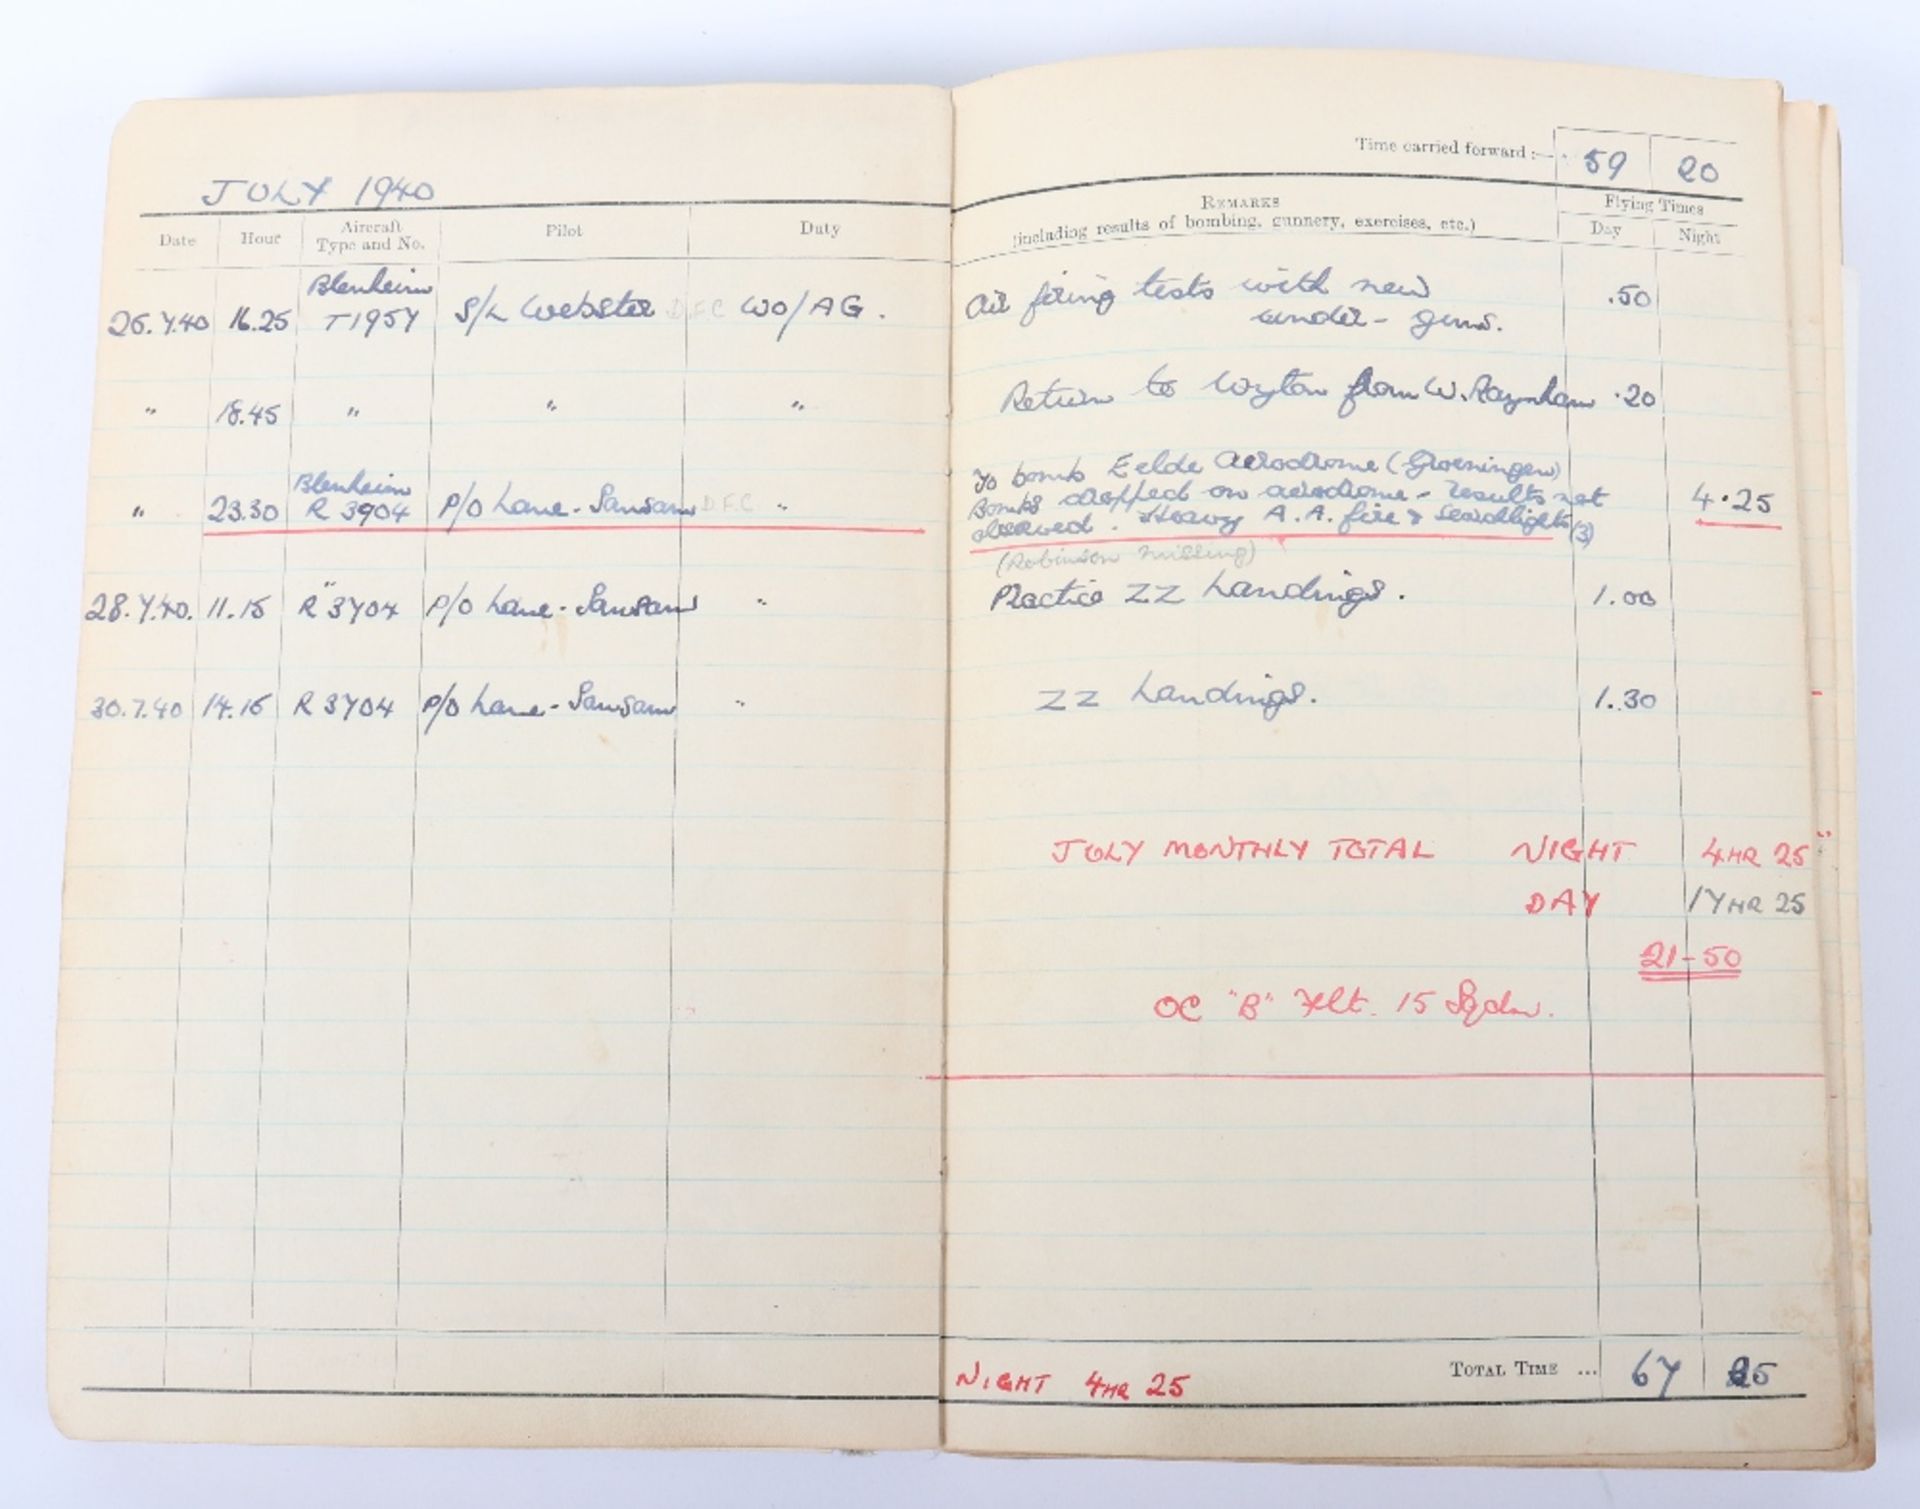 JULY 1940
Date Hour Aircraft Type and No. Pilot Duty
26.7.40 16.25 Blenheim T1957 S/L Webster D.F.C WO/AG.
" 18.45 " " "
" 23.30 Blenheim R 3904 P/O Lane-Sansam D.F.C "
28.7.40. 11.15 R "3704 P/O Lane-Sansam "
30.7.40 14.15 R 3704 P/O Lane-Sansam "
Time carried forward:— 59 20
REMARKS
(including results of bombing, gunnery, exercises, etc.)
Flying Times
Day Night
Air firing tests with new .50
under-guns.
Return to Wyton from W. Raynham .20
To bomb Eelde Aerodrome (Groeningen)
Bombs dropped on aerodrome - results not 4.25
observed. Heavy A.A. fire & searchlights (3)
(Robinson missing)
Practice ZZ Landings. 1.00
ZZ Landings. 1.30
JULY MONTHLY TOTAL NIGHT 4HR 25"
DAY 17HR 25
21-50
OC "B" Flt. 15 Sqdn.
NIGHT 4HR 25
TOTAL TIME ... 67 25